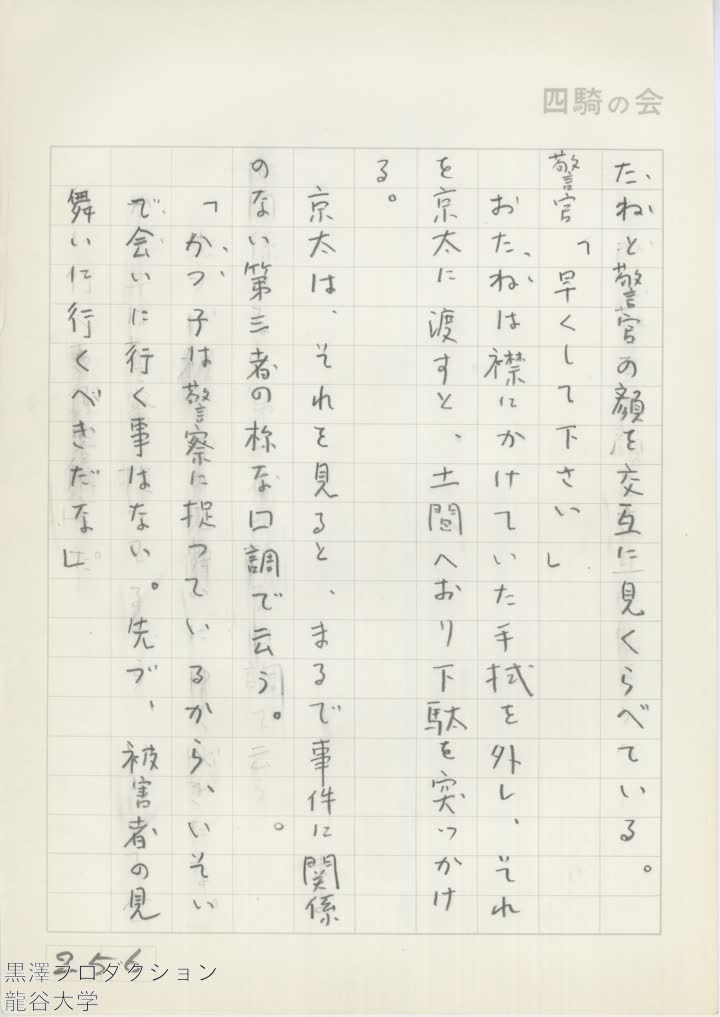 四騎の会
たねと警官の顔を交互に見くらべている。
警官「早くして下さい」
おたねは襟にかけていた手拭を外し、それ
を京太に渡すと、土間へおり下駄を突っかけ
る。
京太は、それを見ると、まるで事件に関係
のない第三者の様な口調で云う。
「かつ子は警察に捉っているから、いそい
で会いに行く事はない。先づ、被害者の見
舞いに行くべきだな」
256
黒澤プロダクション
龍谷大学